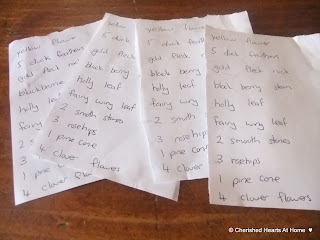 yellow flower
5 duck
gold fleck
blackberrie
holly leaf
fairy
2
3
1 pine
4 clover
5 duck feathers
black berry
holly leaf
fairy wing leaf
2 smooth stones
3 rosehips
1 pine cone
4 clover flowers
yellow
5 duck feathers
gold fleck
black berry
holly leaf
fairy wing
2 smooth
3 rosehips
1 pine cone
4 clover
yellow flower
5 duck feathers
gold fleck rock
black berry stem
holly leaf
fairy wing leaf
2 smooth stones
3 rosehips
1 pine cone
4 clover flowers
© Cherished Hearts At Home ♥